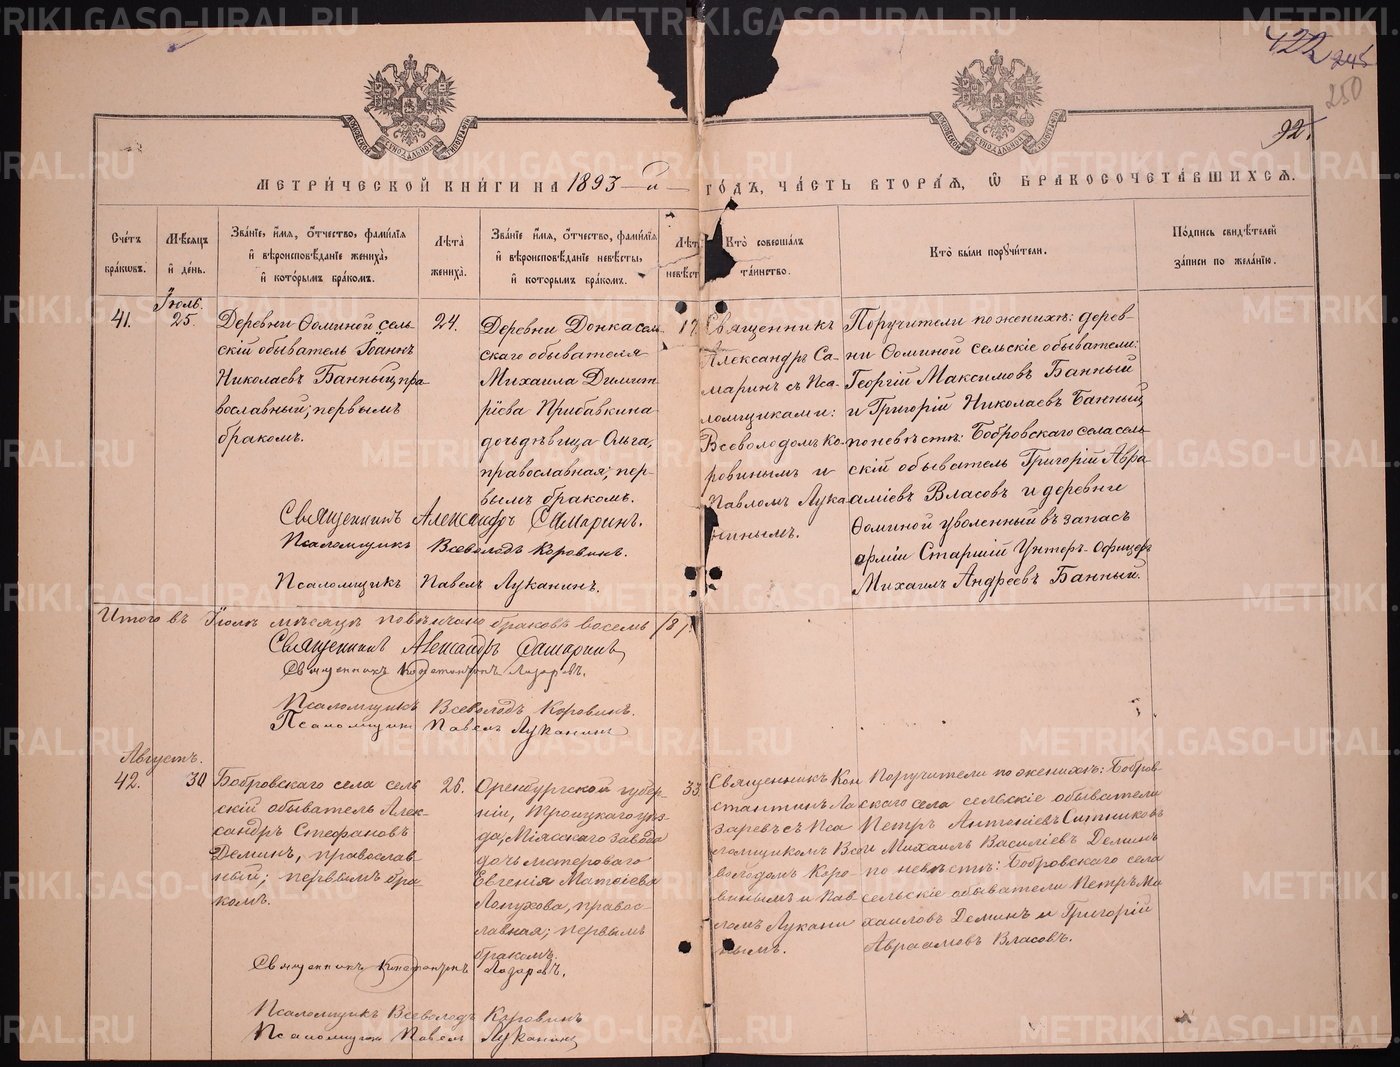 422 245
250
92.
МЕТРИЧЕСКОЙ КНИГИ НА 1893-й ГОДЪ, ЧАСТЬ ВТОРАЯ, Ѡ БРАКОСОЧЕТАВШИХСЯ.
Счетъ браковъ.
Мѣсяцъ и день.
Званіе, имя, отчество, фамилія и вѣроисповѣданіе жениха, и которымъ бракомъ.
Лѣта жениха.
Званіе имя, отчество, фамилія и вѣроисповѣданіе невѣсты, и которымъ бракомъ.
Лѣт невѣст
Кто совершалъ таинство.
Кто были поручители.
Подпись свидѣтелей записи по желанію.
Іюль.
41.
25.
Деревни Ѳоминой сель-
скій обыватель Іоаннъ
Николаевъ Банныц, пра-
вославный, первымъ
бракомъ.
24.
Деревни Донка сель-
скаго обывателя
Михаила Димит-
ріева Прибавкина
дочь дѣвица Ольга,
православная; пер-
вымъ бракомъ.
17
Священникъ
Александръ Са-
маринъ съ Пса-
ломщиками:
Всеволодомъ Ко-
ровинымъ и
Павломъ Лука
нинымъ.
Поручители по женихѣ: дерев-
ни Ѳоминой сельскіе обыватели:
Георгій Максимовъ Банный
и Григорій Николаевъ Банныц,
по невѣстѣ: Бобровскаго села сель-
скій обыватель Григорій Авра-
аміевъ Власовъ и деревни
Ѳоминой уволенный въ запасъ
арміи Старшій Унтеръ-Офицеръ
Михаилъ Андреевъ Банный.
Священникъ Александръ Самаринъ.
Псаломщикъ Всеволодъ Коровинъ.
Псаломщикъ Павелъ Луканинъ.
Итого въ Іюлѣ мѣсяцѣ повѣнчано браковъ восемь /8/.
Священникъ Александръ Самаринъ,
Священникъ Константинъ Лазаревъ.
Псаломщикъ Всеволодъ Коровинъ.
Псаломщикъ Павелъ Луканинъ
Августъ.
42.
30
Бобровскаго села сель
скій обыватель Алек-
сандръ Стефановъ
Деминъ, православ-
ный; первымъ бра-
комъ.
26.
Оренбургской губер-
ніи, Троицкаго уѣз-
да, Міясскаго завода
дочь мастероваго
Евгенія Матѳіева
Лопухова, правос-
лавная; первымъ
бракомъ.
33.
Священникъ Кон
стантинъ Ла
заревъ съ Пса
ломщикомъ Все
володомъ Коро-
винымъ и Пав
ломъ Лукани
нымъ.
Поручители по женихѣ: Бобров-
скаго села сельскіе обыватели
Петръ Антоніевъ Ситниковъ
и Михаилъ Василіевъ Деминъ
по невѣстѣ: Бобровскаго села
сельскіе обыватели Петръ Ми
хаиловъ Деминъ и Григорій
Авраамовъ Власовъ.
Священникъ Константинъ Лазаревъ.
Псаломщикъ Всеволодъ Коровинъ
Псаломщикъ Павелъ Луканинъ